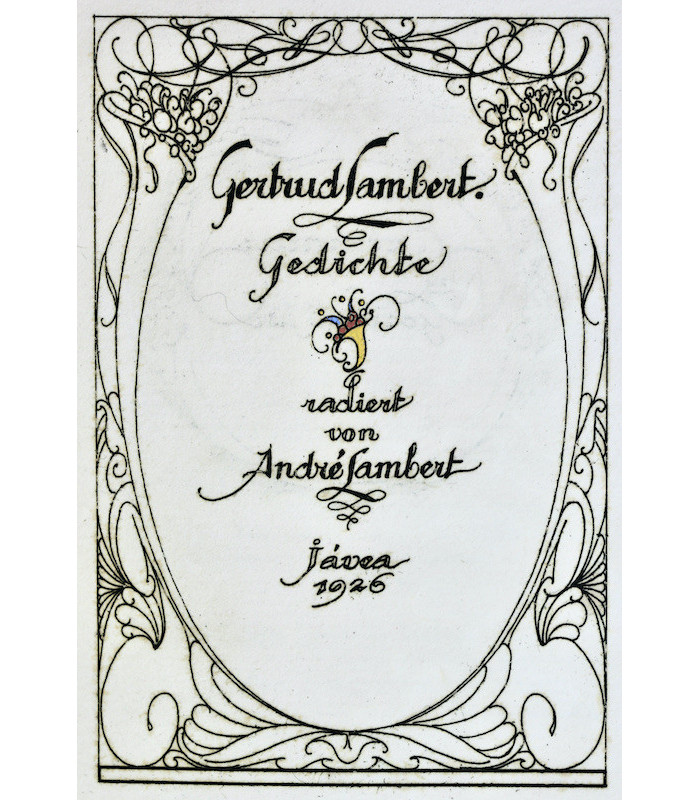 Gertrud Lambert.
Gedichte
radiert
von
André Lambert
Jávea
1926